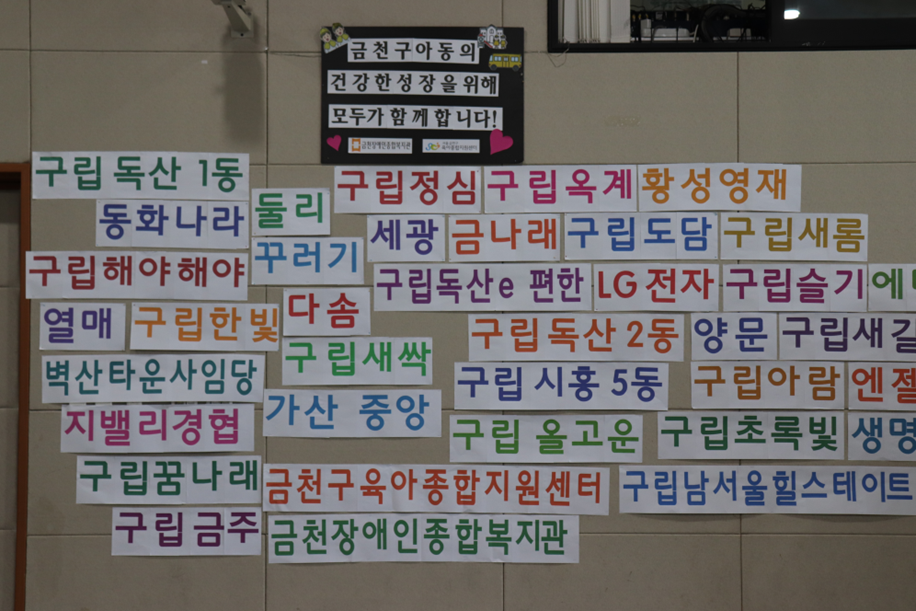 금천구아동의
건강한성장을위해
모두가함께합니다!
금천장애인종합복지관
구립독산1동
구립정심 구립옥계 황성영재
동화나라 둘리 세광 금나래 구립도담 구립새롬
구립해야해야 꾸러기 구립독산e 편한 LG전자 구립슬기
열매 구립한빛 다솜 구립독산2동 양문 구립새길
벽산타운사임당 구립새싹 구립 시흥 5동 구립아람 엔젤
지밸리경협 가산 중앙 구립 올고운 구립초록빛 생명
구립꿈나래 금천구육아종합지원센터 구립남서울힐스테이트
구립금주 금천장애인종합복지관